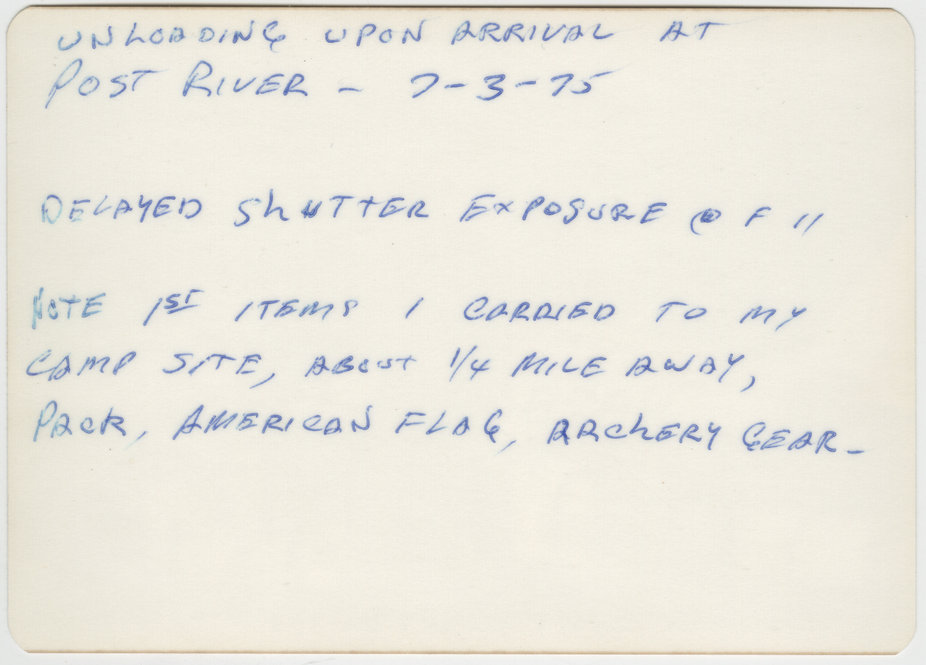 UNLOADING UPON ARRIVAL AT
POST RIVER - 7-3-75
DELAYED SHUTTER EXPOSURE @ F 11
NOTE 1ST ITEMS I CARRIED TO MY
CAMP SITE, ABOUT 1/4 MILE AWAY,
PACK, AMERICAN FLAG, ARCHERY GEAR-